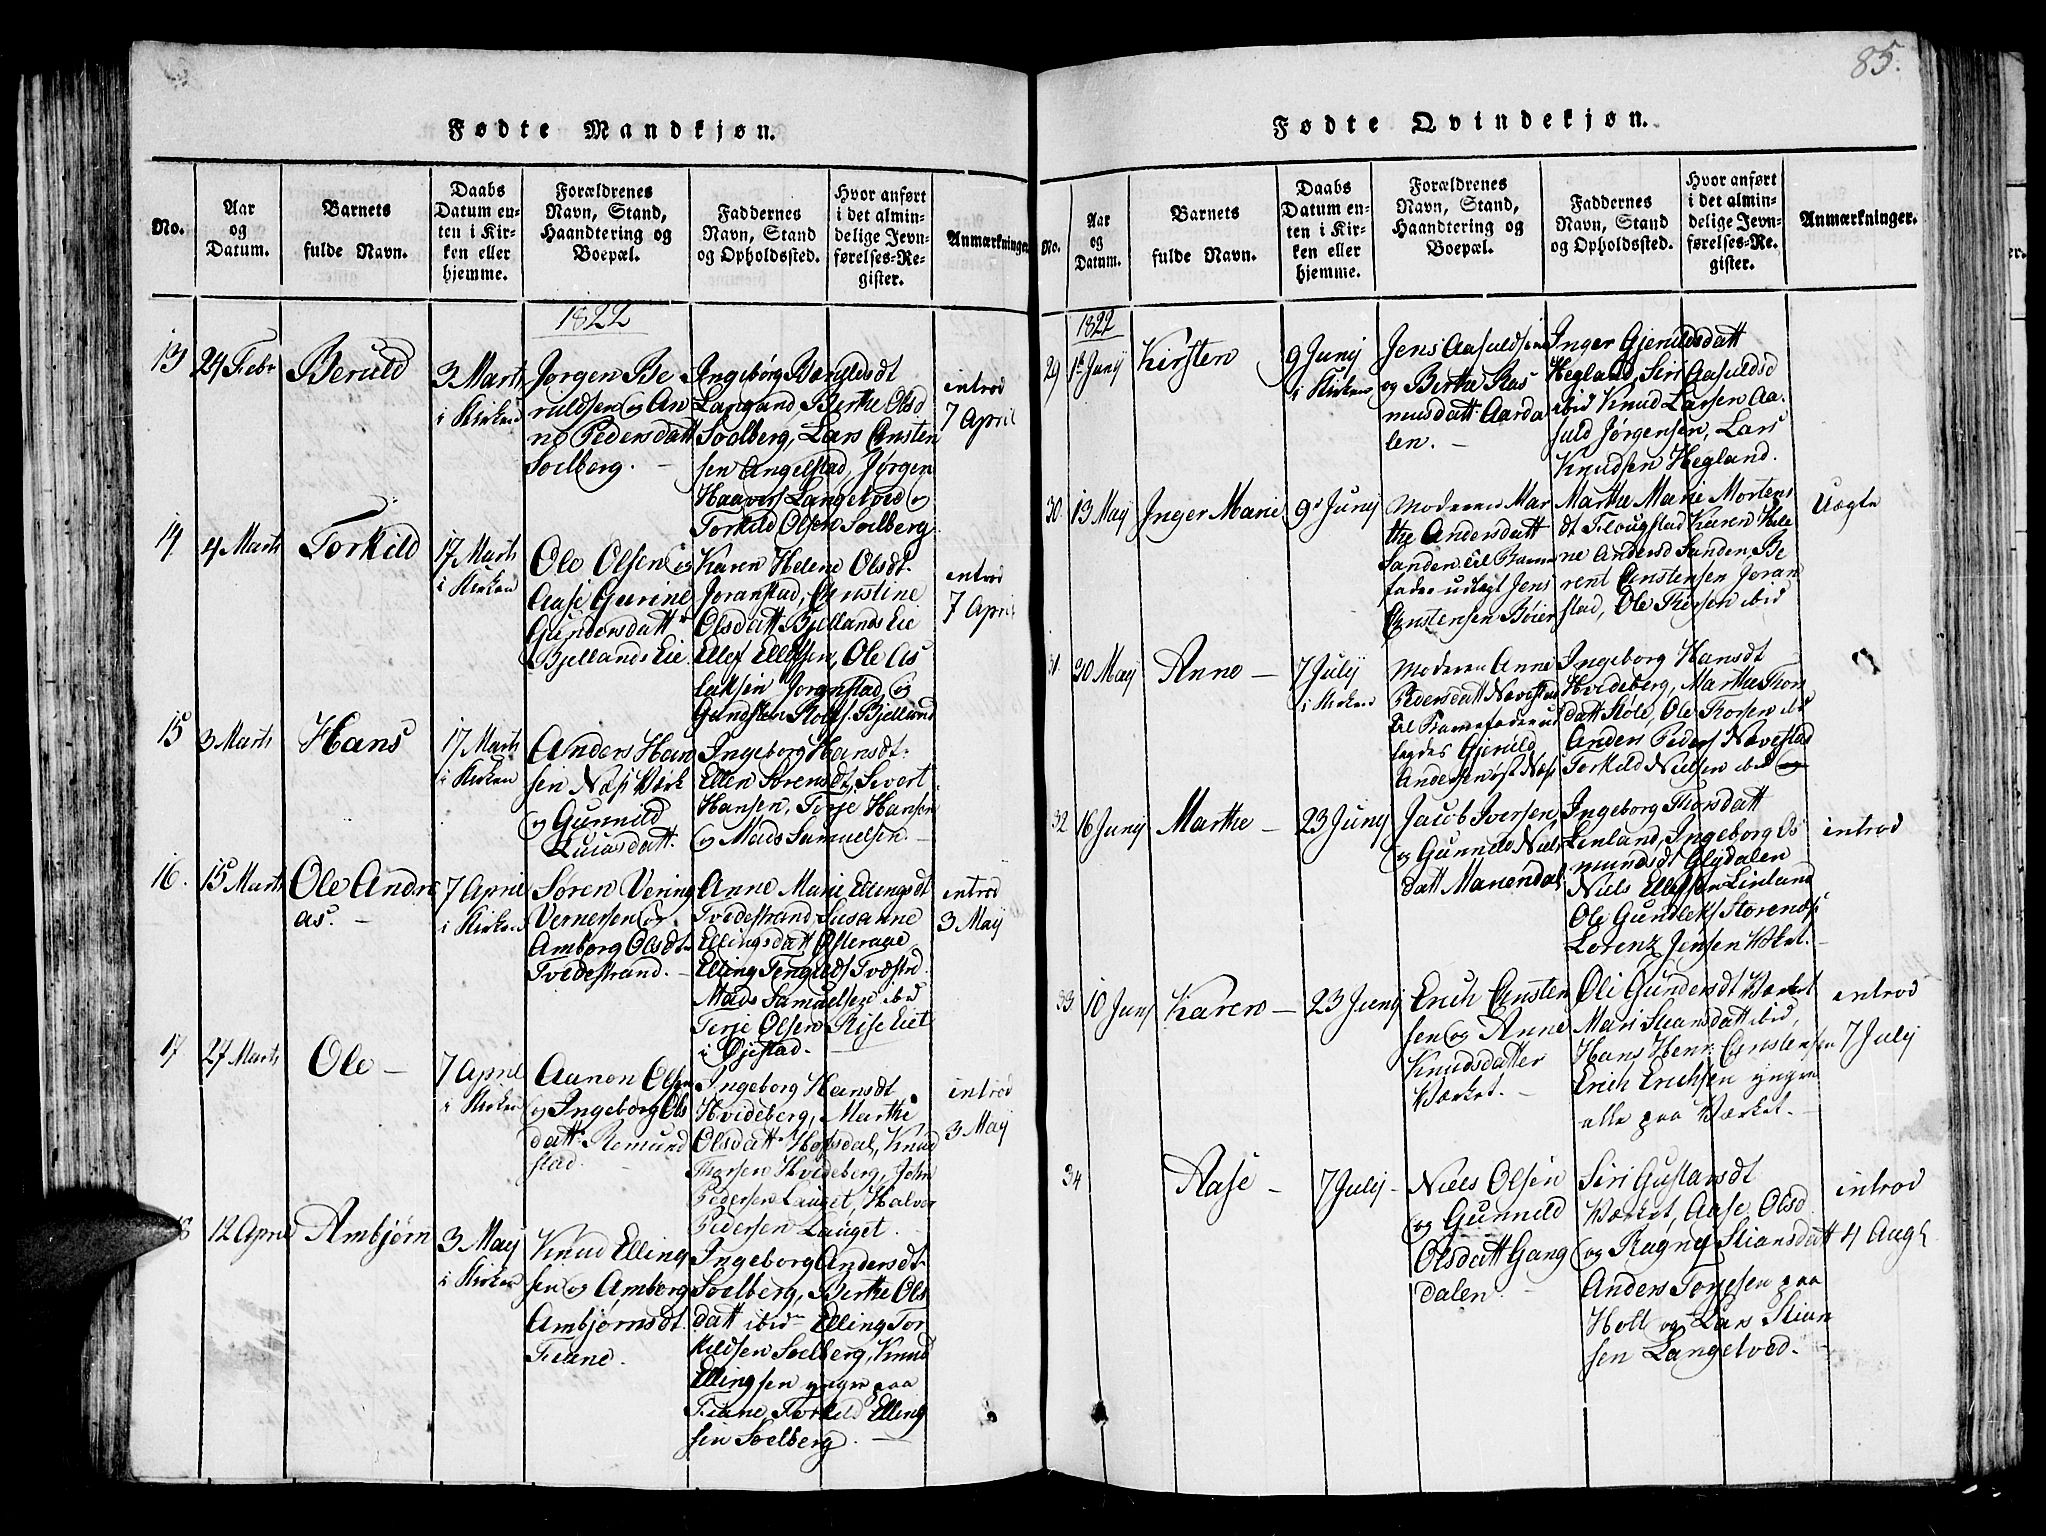 85.
Fødte Mandkjøn.
No.
Aar og Datum.
Barnets fulde Navn.
Daabs Datum enten i Kirken eller hjemme.
Forældrenes Navn, Stand, Haandtering og Boepæl.
Faddernes Navn, Stand og Opholdssted.
Hvor anført i det almindelige Jevnførelses-Register.
Anmærkninger
1822
13
24 Febr
Beruld
3 Marts
i Kirken
Jørgen Be
ruldsen og An
ne Pedersdatt
Soelberg.
Ingebørg
Langand Berthe Olsd
Soelberg, Lars Ansten
sen Angelstad, Jørgen
Haavors Langelved og
Torkild Olsen Soelberg
introd
7 April
14
4 Marts
Torkild
17 Marts
i Kirken
Ole Olsen og
Aase Gurine
Gundersdatt
Bjellands Eie
Karen Helene Olsdt.
Joranstad, Christine
Olsdatt Bjellands Eie
Ellef Ellefsen, Ole As
laksen Joranstad og
Gundsten Rolfs. Bjelland
introd
7 April
15
3 Marts
Hans
17 Marts
i Kirken
Anders Han
sen Næs Værk
og Gunnild
Lucasdatt.
Ingeborg Hansdt.
Ellen Sørensdt, Sivert
Hansen, Terje Hansen
og Mads Samuelsen.
16.
15 Marts
Ole Andre
as. -
7 April
i Kirken
Søren Vering
Vernersen og
Amborg Olsdt.
Tvedestrand.
Anne Marie Ellingsdt
Tvedestrand Susanne
Ellingsdatt Østeraae
Elling Tengelds Tvdstrd.
Mads Samuelsen ibid
Terje Olsen Rise Eiet
i Øjestad.
introd
3 May
17
27 Marts
Ole -
7 April
i Kirken
Aanon Olsen
og Ingeborg Ols
datt. Romund
stad.
Ingeborg Hansdt
Hvideberg, Marthe
Olsdatt Hofsdal, Knud
Thorsen Hvideberg, John
Pedersen Lauget, Halvor
Pedersen Lauget.
introd
3 May
18
12 April
Ambjørn
3 May
i Kirken
Knud Elling
sen og Amborg
Ambjørnsdt.
Fiane.
Ingeborg Andersdt.
Soelberg, Berthe Ols
datt ibid Elling Tor
kildsen Soelberg, Knud
Ellingsen yngre paa
Fiane, Torkild Elling
sen Soelberg.
Fødte Qvindekjøn.
No.
Aar og Datum.
Barnets fulde Navn.
Daabs Datum enten i Kirken eller hjemme.
Forældrenes Navn, Stand, Haandtering og Boepæl.
Faddernes Navn, Stand og Opholdssted.
Hvor anført i det almindelige Jevnførelses-Register.
Anmærkninger.
1822
29
1t Junij
Kirsten
9 Junij
i Kirken
Jens Aasuldsen
og Berthe Ras
musdatt Aarda
len. -
Inger Gjeruldsdatt
Hegland, Siri Aasuldsd
ibid Knud Larsen Aa-
suld Jørgensen, Lars
Knudsen Hegland.
30.
13 May
Inger Marie
9 Junij
Moderen Mar
the Andersdatt
Sanden til Barne
fader udlagt Jens
Christensen Bøier
Marthe Marie Mortens
dt Flougstad Karen Hele
ne Andersd Sanden, Be
rent Christensen Joran
stad, Ole Thorsen ibid
Uægte
31.
30 May
Anne -
7 Julij
i Kirken
Moderen Anne
Pedersdatt Nævestad
til Barnefader ud
lagdes Gjeruld
Andersen øst Næs
Ingeborg Hansdt
Hvideberg, Marthe Thor
datt Støle, Ole Rorsen ibd
Anders Peders Nævestad
Torkild Nielsen ibid og
32
16 Junij
Marthe -
23 Junij
Jacob Iversen
og Gunnild Niels
datt Manendal
Ingeborg Thorsdatt
Linland, Ingeborg Os
mundsdt Glydalen
Niels Ellefsen Linland
Ole Gundleks Storenæs
Lorenz Jensen Værket.
introd
33
10 Junij
Karen -
23 Junij
Erich Christen
sen og Anne
Knudsdatter
Værket. -
Oli Gundersdt Værket
Mari Stiansdatt ibid,
Hans Henr. Christensen
Erich Erichsen yngre
alle paa Værket. -
introd
7 Julij
34
Aase -
7 Julij -
Niels Olsen
og Gunnild
Olsdatt Gang
dalen.
Siri Gustavsdt
Værket, Aase Olsd
og Ragne Stiansdatt
Anders Torjesen paa
Holt og Lars Stian
sen Langelved. -
introd
4 Augt